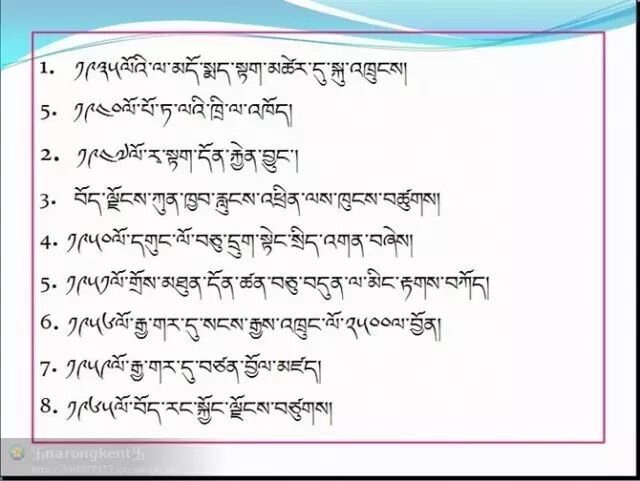 1. ༡༩༣༥ལོའི་ལ་མདོ་སྨད་སྟག་མཚེར་དུ་སྐུ་འཁྲུངས།
5. ༡༩༤༠ལོ་པོ་ཏ་ལའི་ཁྲི་ལ་འཁོད།
2. ༡༩༤༧ལོ་ར་སྟག་དོན་རྐྱེན་བྱུང་།
3. བོད་ལྗོངས་ཀུན་ཁྱབ་རླུངས་འཕྲིན་ལས་ཁུངས་བཙུགས།
4. ༡༩༥༠ལོ་དགུང་ལོ་བཅུ་དྲུག་སྟེང་སྲིད་འགན་བཞེས།
5. ༡༩༥༡ལོ་གྲོས་མཐུན་དོན་ཚན་བཅུ་བདུན་ལ་མིང་རྟགས་བཀོད།
6. ༡༩༥༦ལོ་རྒྱ་གར་དུ་སངས་རྒྱས་འཁྲུང་ལོ་༢༥༠༠ལ་བྱོན།
7. ༡༩༥༩ལོ་རྒྱ་གར་དུ་བཙན་བྱོལ་མཛད།
8. ༡༩༦༥ལོ་བོད་རང་སྐྱོང་ལྗོངས་བཙུགས།
卐narongkent卐